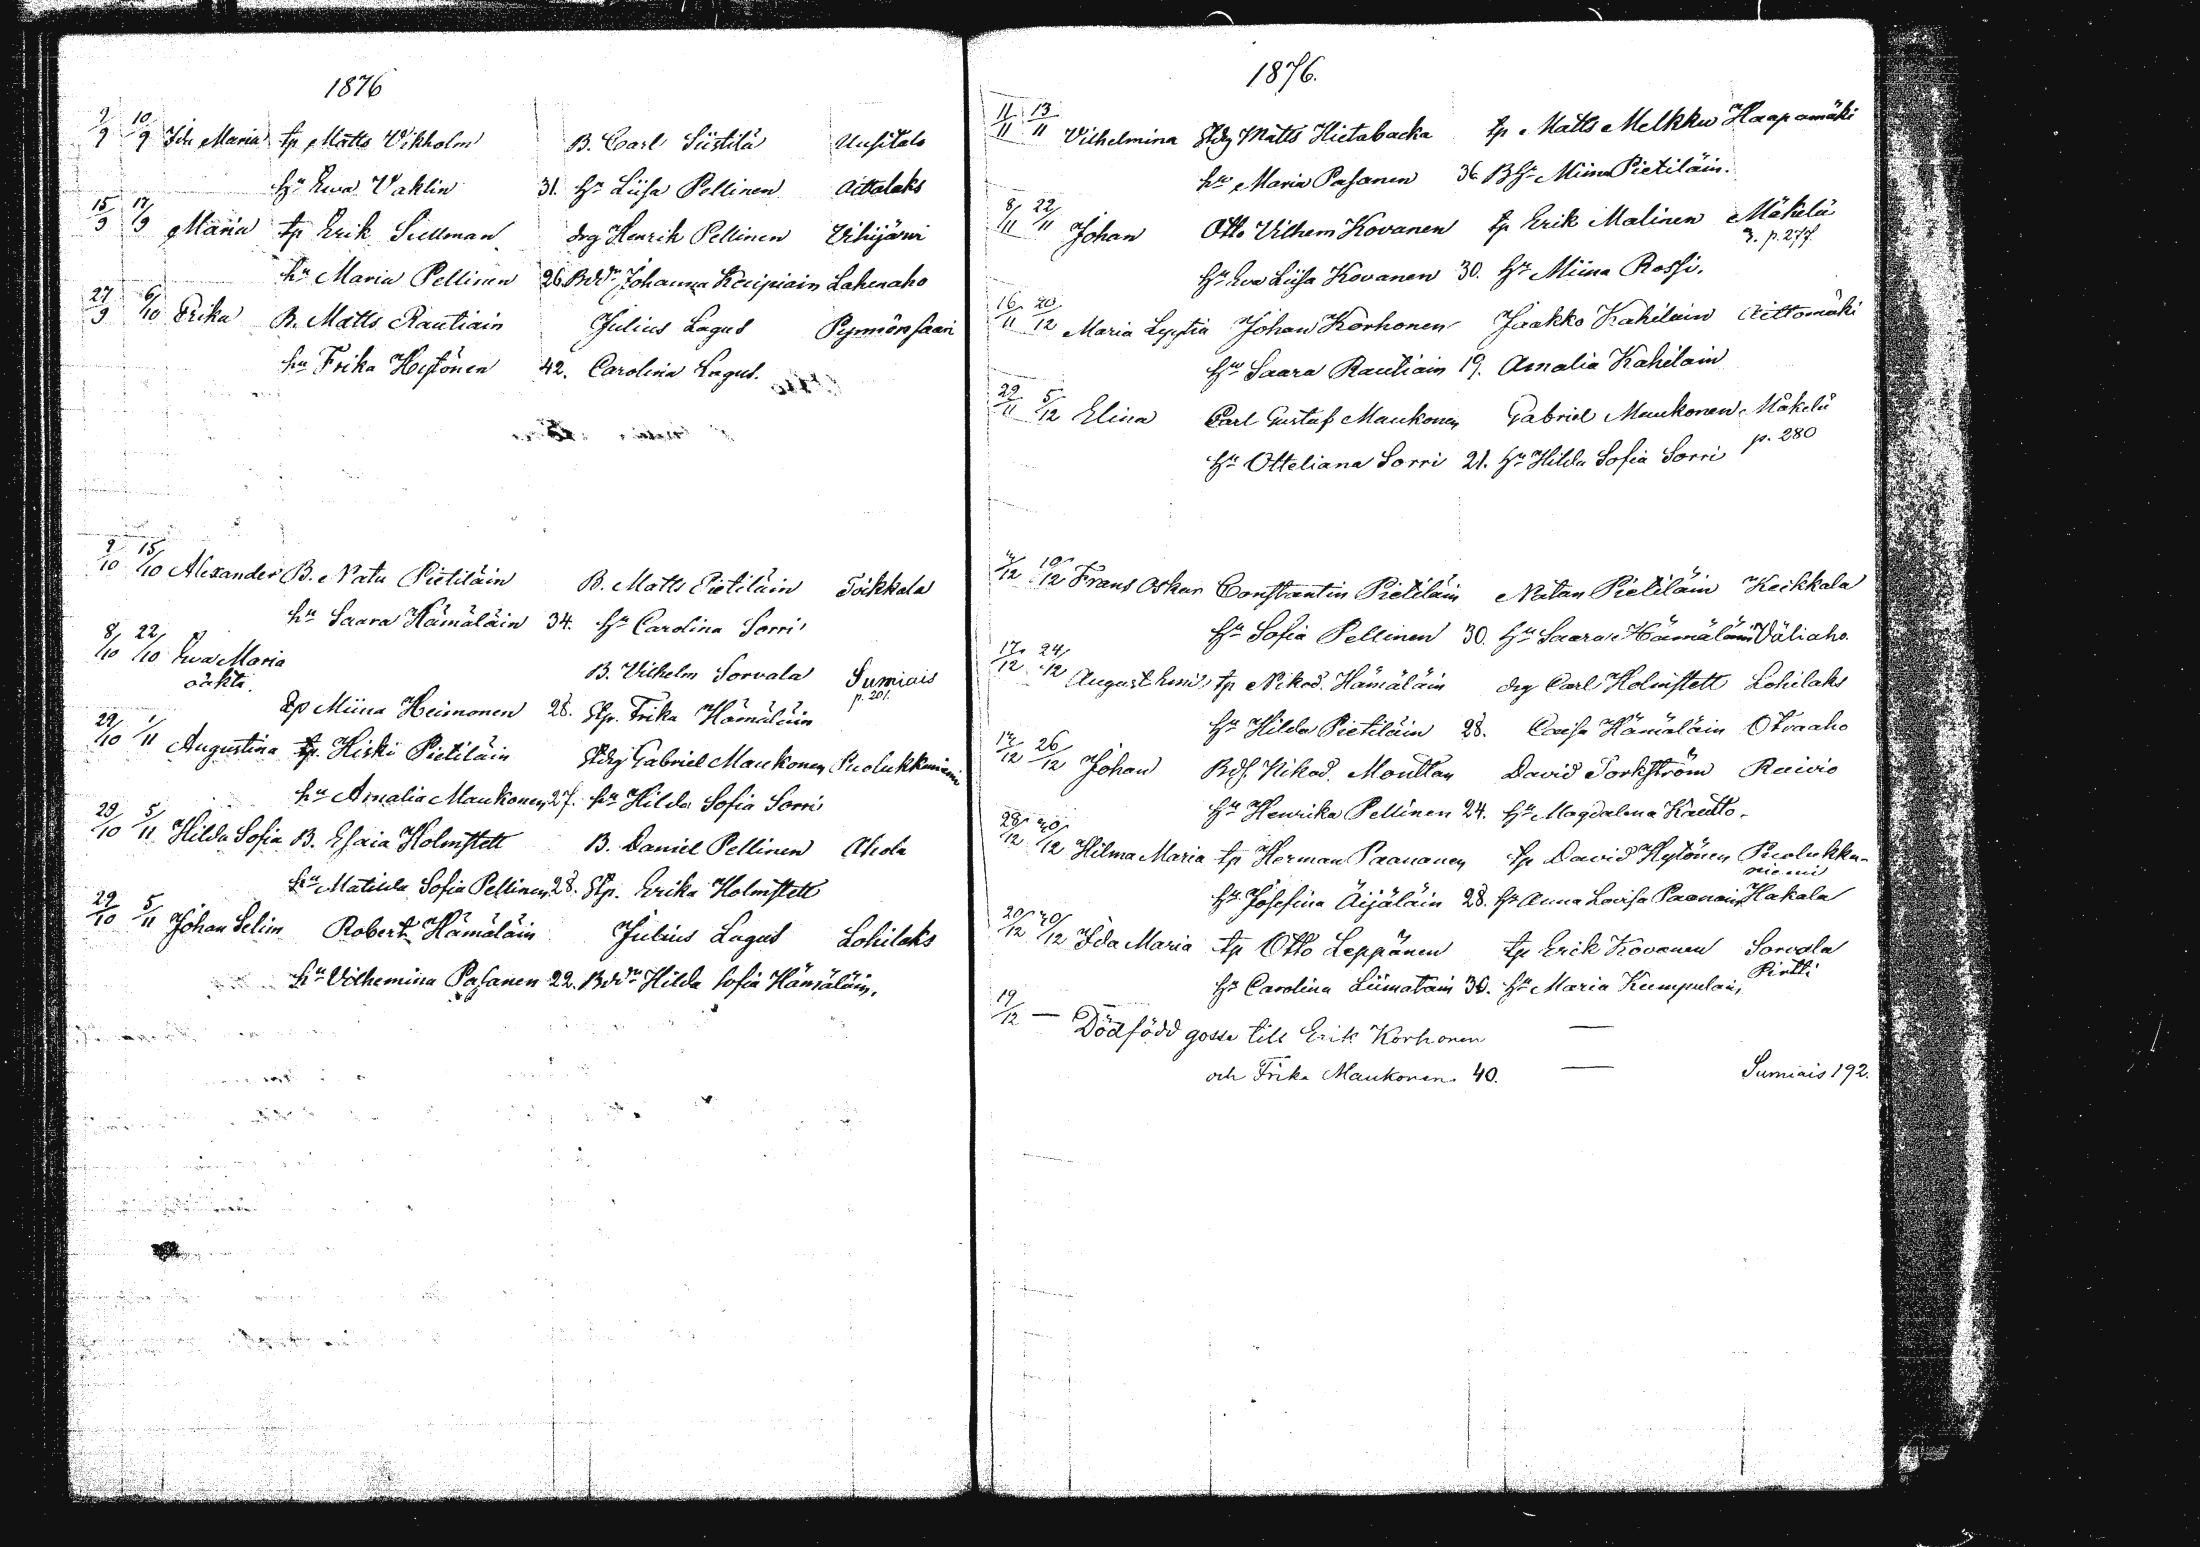 1876
9/9 10/9 Ida Maria tp Matts Vikholm B. Carl Siistilä Uusitalo
hu Ewa Vahlin 31. hu Liisa Pellinen Aittolaks
15/9 17/9 Maria tp Erik Sillman drg Henrik Pellinen Vihijärvi
hu Maria Pellinen 26. Bdr Johanna Lahenaho
27/9 6/10 Frika B. Matts Rautiain Julius Lagus
hu Frika Hytönen 42. Carolina Lagus.
9/10 15/10 Alexander B. Natu Pietiläin B. Matts Pietiläin Toikkala
hu Saara Hämäläin 34. hu Carolina Sorri
8/10 22/10 Ewa Maria
oäkta. B. Vilhelm Sorvala Sumiais
p. 201.
Pp Miina Heimonen 28. Stp. Frika Hämäläin
29/10 1/11 Augustina tp. Hiski Pietiläin Stdrg Gabriel Maukonen Puolukkaniemi
hu Amalia Maukonen 27. hu Hilda Sofia Sorri
29/10 5/11 Hilda Sofia B. Esaia Holmstett B. Daniel Pellinen Ahola
hu Matilda Sofia Pellinen 28. Stp. Erika Holmstett
29/10 5/11 Johan Selim Robert Hämäläin Julius Lagus Lohilaks
hu Vilhemina Pasanen 22. Bdr Hilda Sofia Hämäläin.
1876.
11/11 13/11 Vilhelmina Stdrg Matts Hietabacka tp Matts Melkku Haapamäki
hu Maria Pasanen 36. B hu Miina Pietiläin.
8/11 22/11 Johan Otto Vilhem Kovanen tp Erik Malinen Mäkelä
3. p. 277.
hu Eva Liisa Kovanen 30. hu Miina Rossi.
16/11 20/12 Maria Johan Korhonen Jaakko Kahilain Aittomäki
hu Saara Rautiain 19. Amalia Kahilain
22/11 5/12 Elina Carl Gustaf Maukonen Gabriel Maukonen Mäkelä
p. 280
hu Otteliana Sorri 21. hu Hilda Sofia Sorri
4/12 10/12 Frans Oskar Constantin Pietiläin Natan Pietiläin Keikkala
hu Sofia Pellinen 30. hu Saara Hämäläin Väliaho
17/12 24/12 August Emil tp Nikod. Hämäläin drg Carl Holmstett Lohilaks
hu Hilda Pietiläin 28. Caisa Hämäläin Otraaho
17/12 26/12 Johan Nikod. David Torkström Raivio
hu Henrika Pellinen 24. hu Magdalena Kautto.
28/12 30/12 Hilma Maria tp Herman Paananen tp David Hytönen Puolukka-
niemi
hu Josefina Äijäläin 28. hu Anna Lovisa Paanain Hakala
20/12 30/12 Ida Maria tp Otto Leppänen tp Erik Kovanen Sorvala
Pirtti
hu Carolina Liimatain 30. hu Maria Kumpulain,
19/12 — Dödfödd gosse till Erik Korhonen —
och Frika Maukonen 40. — Sumiais 192.